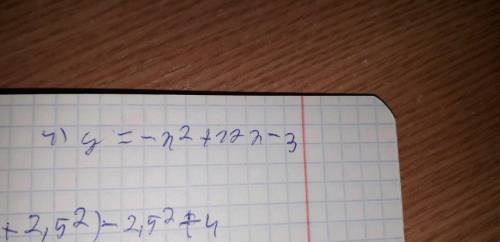 г) y = -x² + 12x - 3
+ 2,5²) - 2,5² + 4